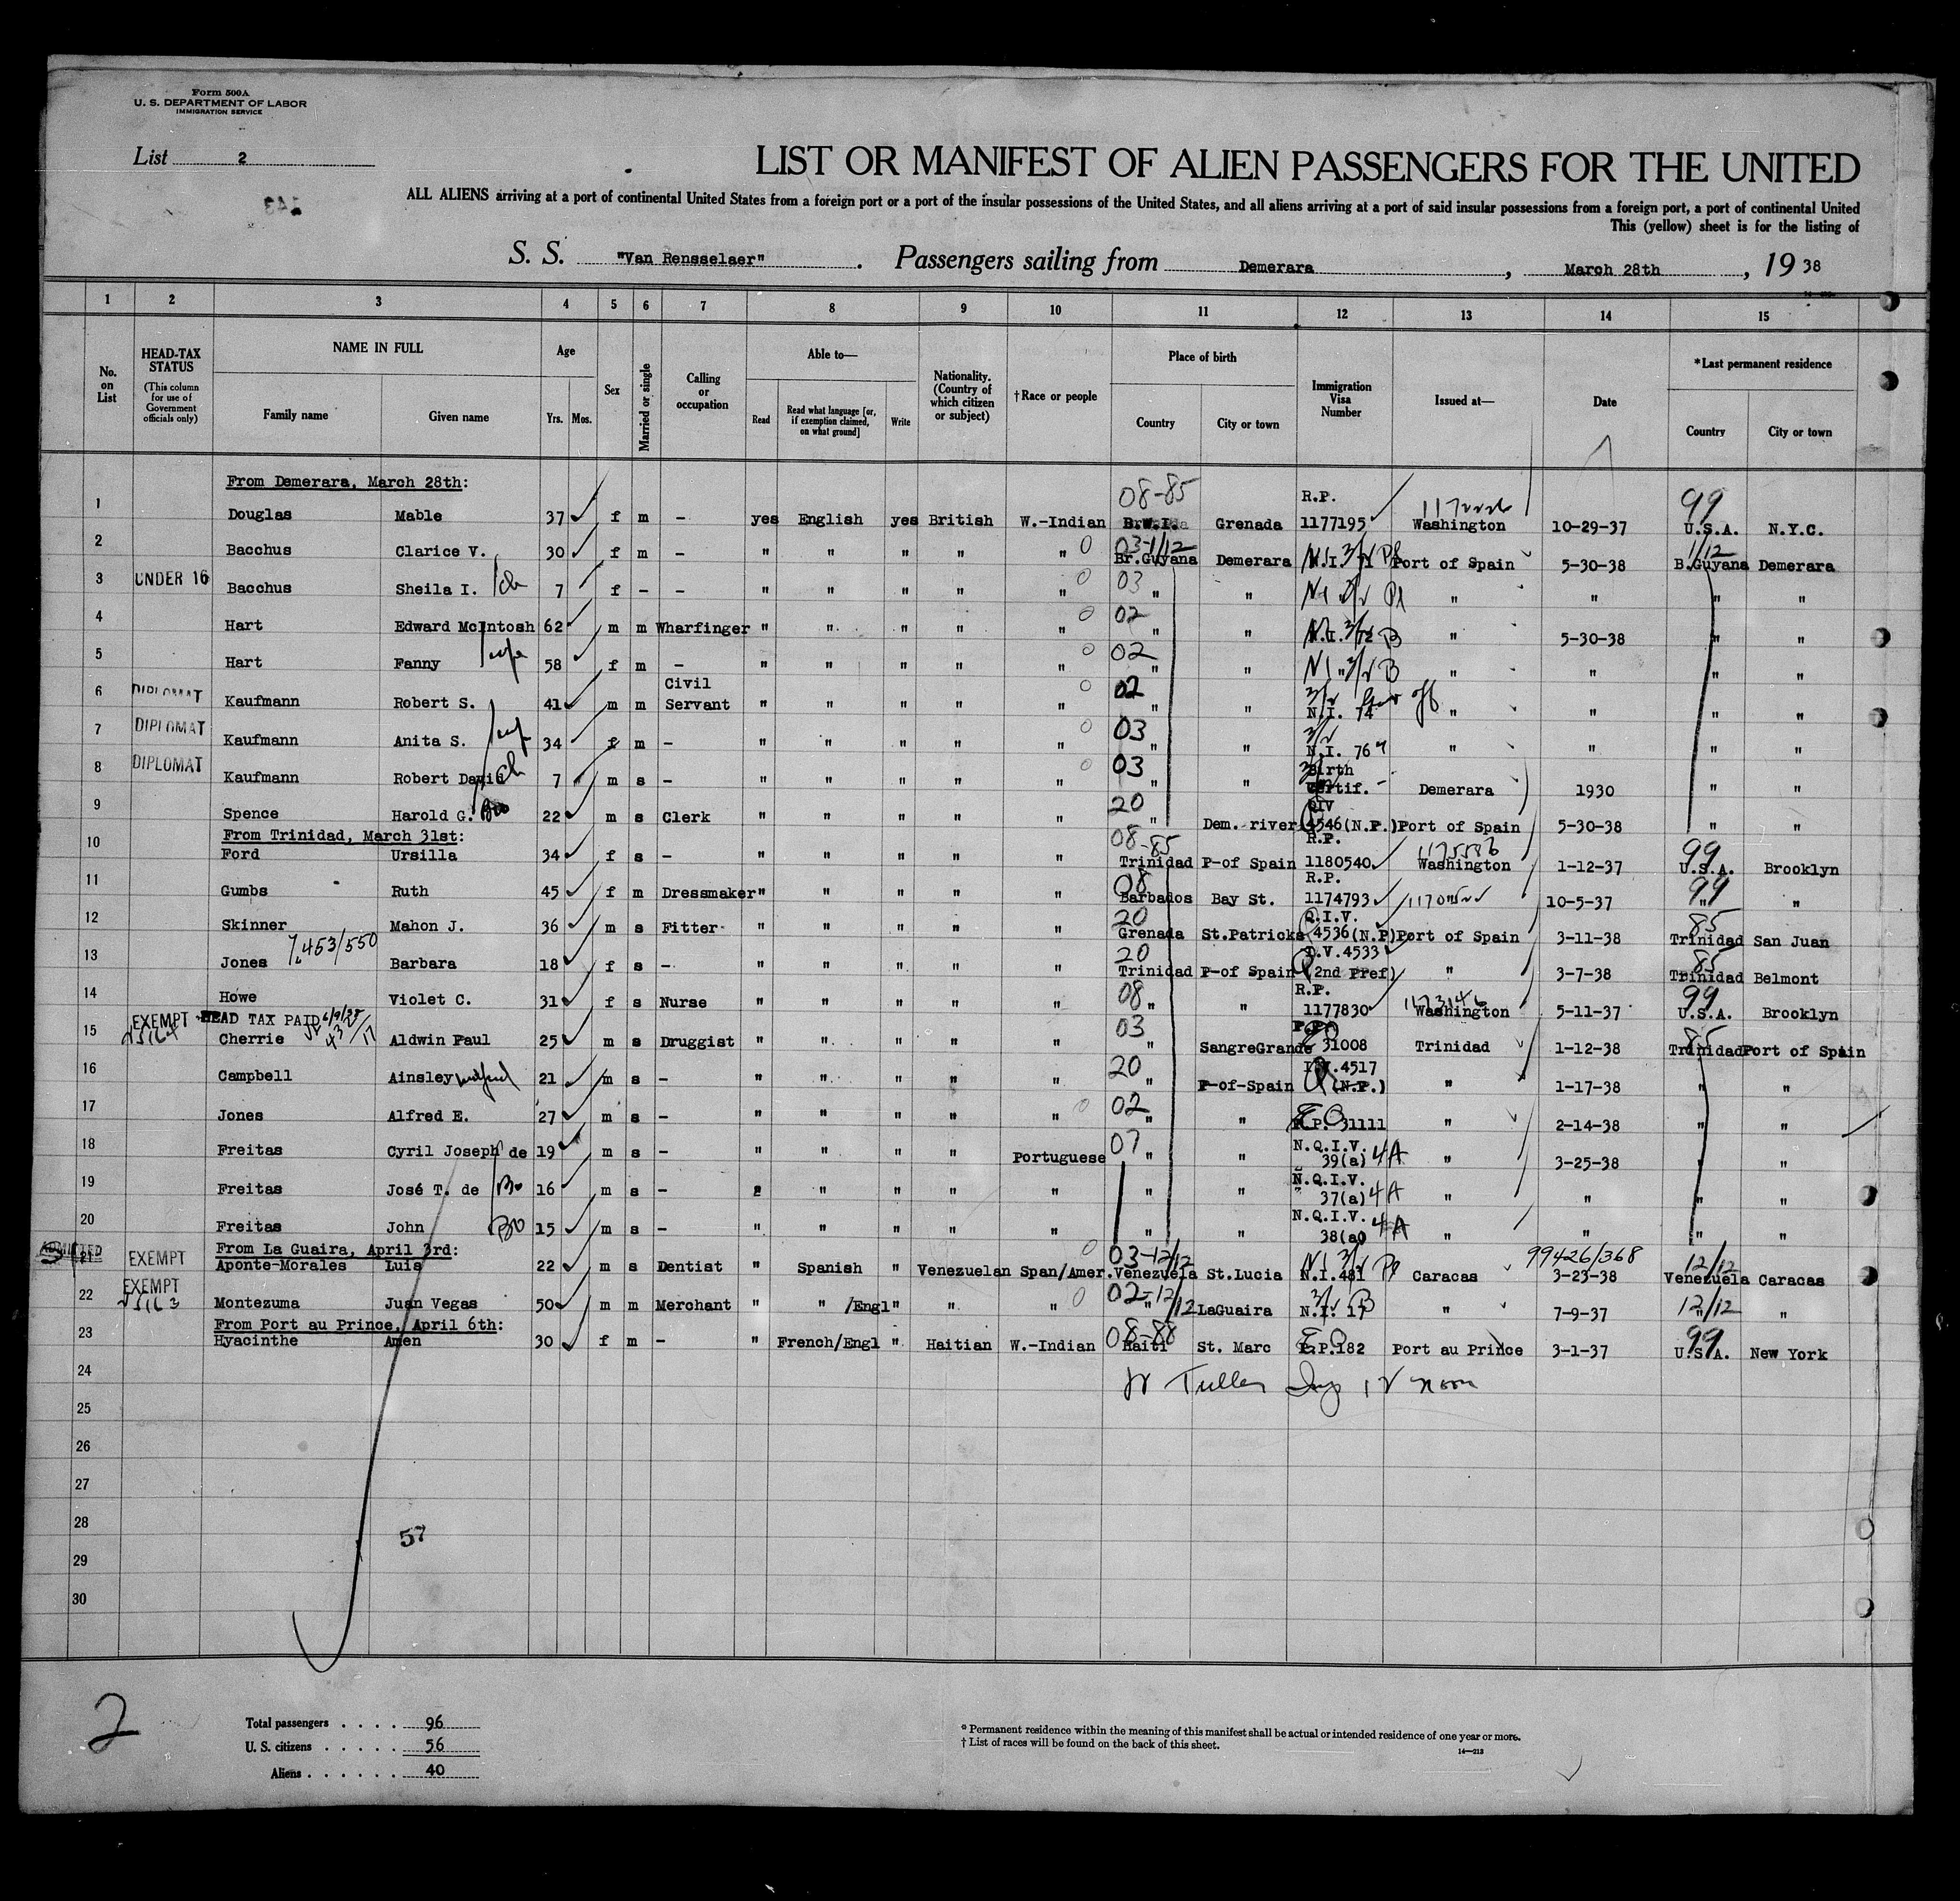 Form 500A
U. S. DEPARTMENT OF LABOR
IMMIGRATION SERVICE
List 2
LIST OR MANIFEST OF ALIEN PASSENGERS FOR THE UNITED
ALL ALIENS arriving at a port of continental United States from a foreign port or a port of the insular possessions of the United States, and all aliens arriving at a port of said insular possessions from a foreign port, a port of continental United
This (yellow) sheet is for the listing of
S. S. "Van Rensselaer". Passengers sailing from Demerara, March 28th, 19 38
1 2 3 4 5 6 7 8 9 10 11 12 13 14 15
No. on List
HEAD-TAX STATUS (This column for use of Government officials only)
NAME IN FULL Family name Given name
Age Yrs. Mos.
Sex
Married or single
Calling or occupation
Able to— Read Read what language [or, if exemption claimed, on what ground] Write
Nationality. (Country of which citizen or subject)
†Race or people
Place of birth Country City or town
Immigration Visa Number
Issued at—
Date
*Last permanent residence Country City or town
From Demerara, March 28th:
08-85 R.P. 99
1 Douglas Mable 37 f m - yes English yes British W.-Indian B.W.I. Grenada 1177195 Washington 10-29-37 U.S.A. N.Y.C.
2 Bacchus Clarice V. 30 f m - " " " " " 03-1/12 Br.Guyana Demerara N.I. 71 Port of Spain 5-30-38 1/12 B.Guyana Demerara
3 UNDER 16 Bacchus Sheila I. ch 7 f - - " " " " " 03 " " " " " "
4 Hart Edward McIntosh 62 m m Wharfinger " " " " " 02 " " N.I. 72 B " 5-30-38 " "
5 Hart Fanny wife 58 f m - " " " " " 02 " " " " " "
6 DIPLOMAT Kaufmann Robert S. 41 m m Civil Servant " " " " " 02 " " N.I. 74 " " " "
7 DIPLOMAT Kaufmann Anita S. wife 34 f m - " " " " " 03 " " N.I. 76 " " " "
8 DIPLOMAT Kaufmann Robert David ch 7 m s - " " " " " 03 " " Birth Certif. - Demerara 1930 " "
9 Spence Harold G. 22 m s Clerk " " " " " 20 " Dem. river QIV 4546(N.P.) Port of Spain 5-30-38 " "
From Trinidad, March 31st:
10 Ford Ursilla 34 f s - " " " " " 08-85 Trinidad P-of Spain R.P. 1180540 Washington 1-12-37 99 U.S.A. Brooklyn
11 Gumbs Ruth 45 f m Dressmaker " " " " " 08 Barbados Bay St. R.P. 1174793 10-5-37 99 " "
12 Skinner Mahon J. 36 m s Fitter " " " " " 20 Grenada St.Patricks Q.I.V. 4536(N.P) Port of Spain 3-11-38 85 Trinidad San Juan
13 Jones Barbara 18 f s - " " " " " 20 Trinidad P-of Spain 4533 (2nd Pref) " 3-7-38 85 Trinidad Belmont
14 Howe Violet C. 31 f s Nurse " " " " " 08 " " R.P. 1177830 Washington 5-11-37 99 U.S.A. Brooklyn
EXEMPT HEAD TAX PAID
15 Cherrie Aldwin Paul 25 m s Druggist " " " " " 03 " SangreGrande 31008 Trinidad 1-12-38 85 Trinidad Port of Spain
16 Campbell Ainsley 21 m s - " " " " " 20 " P-of-Spain 4517 (N.P.) " 1-17-38 " "
17 Jones Alfred E. 27 m s - " " " " " 02 " " P. 31111 " 2-14-38 " "
18 Freitas Cyril Joseph de 19 m s - " " " " Portuguese 07 " " N.Q.I.V. 39(a) 4A " 3-25-38 " "
19 Freitas José T. de Bo 16 m s - " " " " " " " N.Q.I.V. 37(a) 4A " " " "
20 Freitas John Bo 15 m s - " " " " " " " N.Q.I.V. 38(a) 4A " " " "
From La Guaira, April 3rd:
ADMITTED 21 EXEMPT Aponte-Morales Luis 22 m s Dentist " Spanish " Venezuelan Span/Amer. 03-12/12 Venezuela St.Lucia N.I.481 Caracas 99426/368 3-23-38 12/12 Venezuela Caracas
22 EXEMPT Montezuma Juan Vegas 50 m m Merchant " " /Engl " " " 02-12/12 " LaGuaira N.I. 17 " 7-9-37 12/12 " "
From Port au Prince, April 6th:
23 Hyacinthe Amen 30 f m - " French/Engl " Haitian W.-Indian 08-88 Haiti St. Marc P.182 Port au Prince 3-1-37 99 U.S.A. New York
24
25
26
27
28
29
30
57
2
Total passengers . . . . 96
U. S. citizens . . . . . 56
Aliens . . . . . . 40
* Permanent residence within the meaning of this manifest shall be actual or intended residence of one year or more.
† List of races will be found on the back of this sheet.
14—213